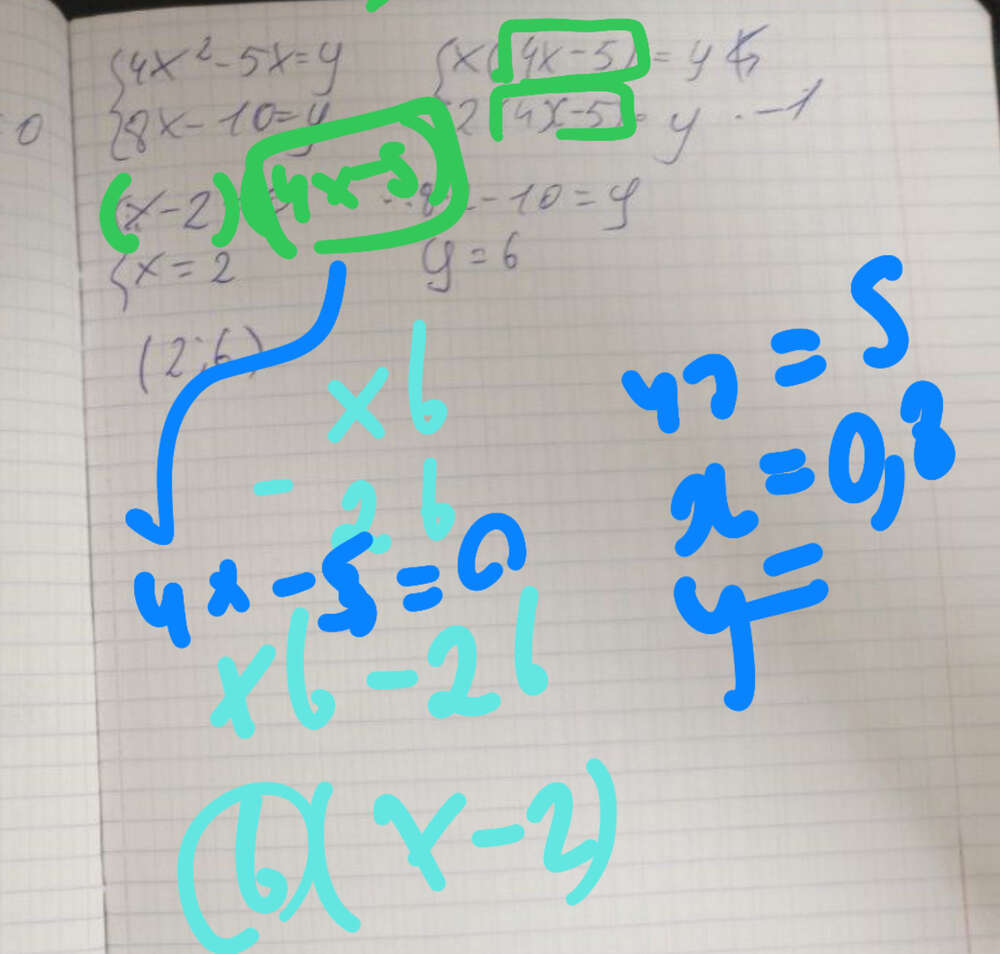 {4x²-5x=y {x(4x-5)=y
{8x-10=y 2(4x-5)=y ·-1
0
(x-2)(4x-5) 8x-10=y
{x=2 y=6
(2;6)
x6
-26
4x-5=0
x6-26
(6)(x-2)
4x=5
x=0,8
y=